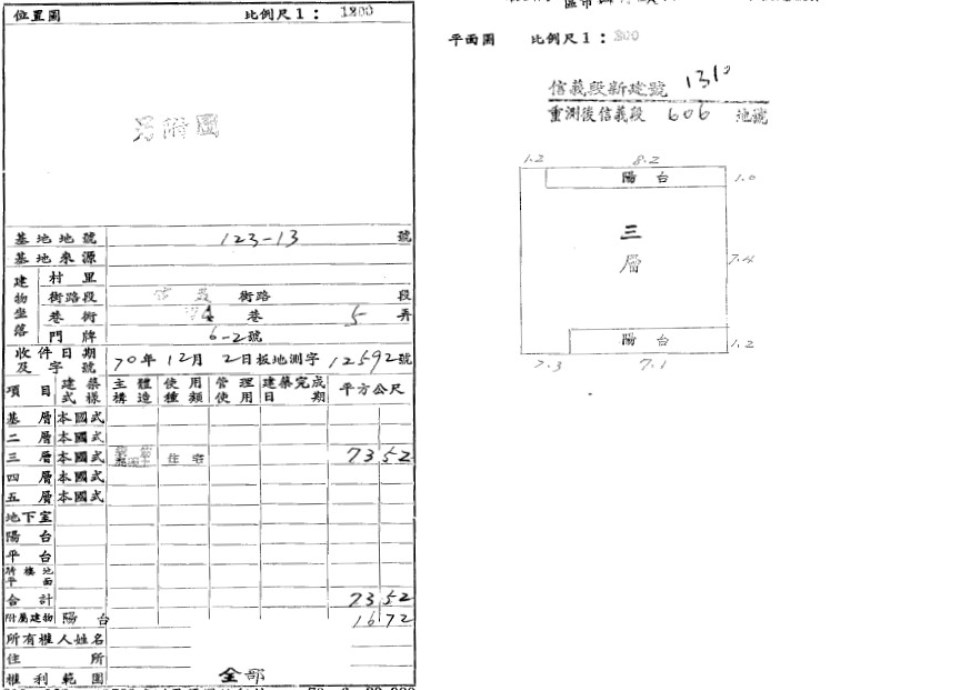 位置圖 比例尺1： 1200
另附圖
基地地號 123-13 號
基地來源
建物坐落
村里
街路段 信義 街路 段
巷衖 巷 5 弄
門牌 6-2號
收件日期及字號 70年12月 2日板地測字12592號
項目 建築式樣 主體構造 使用種類 管理使用 建築完成日期 平方公尺
基層 本國式
二層 本國式
三層 本國式 住宅 73 52
四層 本國式
五層 本國式
地下室
陽台
平台
騎樓地平面
合計 73 52
附屬建物 陽台 16 72
所有權人姓名
住所
權利範圍 全部
平面圖 比例尺1：
信義段新建號 1310
重測後信義段 606 地號
1.2 8.2
陽台 1.0
三層
7.4
陽台 1.2
2.3 7.1